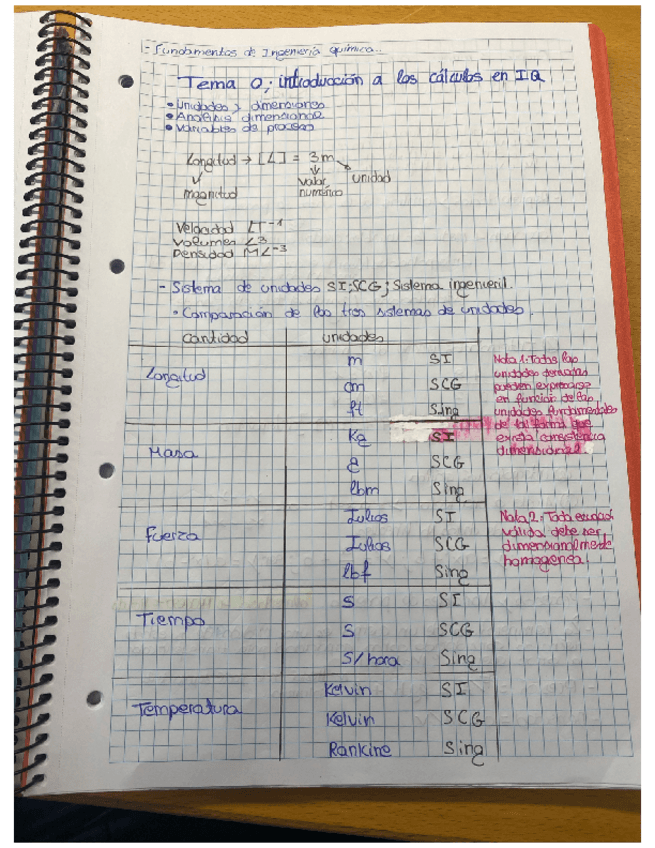 1- Fundamentos de Ingeniería química.
Tema 0; introducción a los cálculos en IQ
• Unidades y dimensiones
• Análisis dimensional
• Variables de proceso
Longitud → [L] = 3 m
magnitud valor numérico unidad
Velocidad LT⁻¹
Volumen L³
Densidad ML⁻³
- Sistema de unidades SI; SCG; Sistema ingenieril.
• Comparación de los tres sistemas de unidades.
cantidad unidades
Longitud
m SI
cm SCG
ft Sing
Masa
Kg SI
g SCG
lbm Sing
Fuerza
Julios SI
Julios SCG
lbf Sing
Tiempo
s SI
s SCG
s/hora Sing
Temperatura
Kelvin SI
Kelvin SCG
Rankine Sing
Nota 1: Todas las
unidades derivadas
pueden expresarse
en función de las
unidades fundamentales
de tal forma que
exista consistencia
dimensional.
Nota 2: Toda ecuación
válida debe ser
dimensionalmente
homogénea.